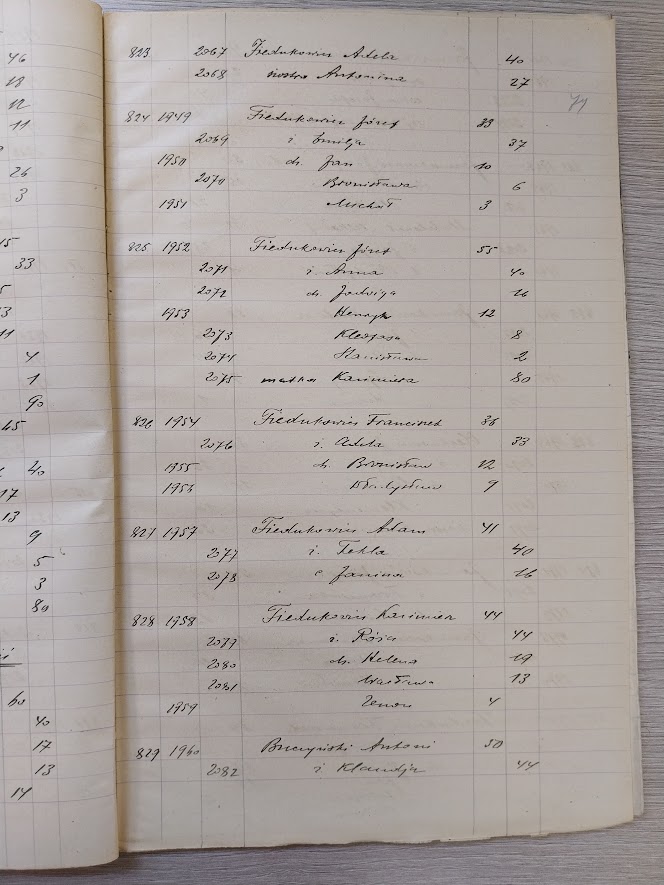 46
18
12
11
26
3
15
33
5
53
11
4
1
90
45
40
17
13
9
5
3
80
60
40
17
13
14
71
823 2067 Fiedukowicz Adela 40
2068 siostra Antonina 27
824 1949 Fiedukowicz Józef 33
2069 ż. Emilja 37
1950 dz. Jan 10
2070 Bronisława 6
1951 Michał 3
825 1952 Fiedukowicz Józef 55
2071 ż. Anna 40
2072 dz. Jadwiga 16
1953 Henryk 12
2073 8
2074 Stanisława 2
2075 matka Kazimiera 80
826 1954 Fiedukowicz Franciszek 36
2076 ż. Adela 33
1955 dz. Bronisław 12
1956 Władysław 9
827 1957 Fiedukowicz Adam 41
2077 ż. Tekla 40
2078 c. Janina 16
828 1958 Fiedukowicz Kazimierz 44
2079 ż. Róża 44
2080 dz. Helena 19
2081 Wacława 13
1959 Zenon 4
829 1960 Buczyński Antoni 50
2082 ż. Klaudja 44